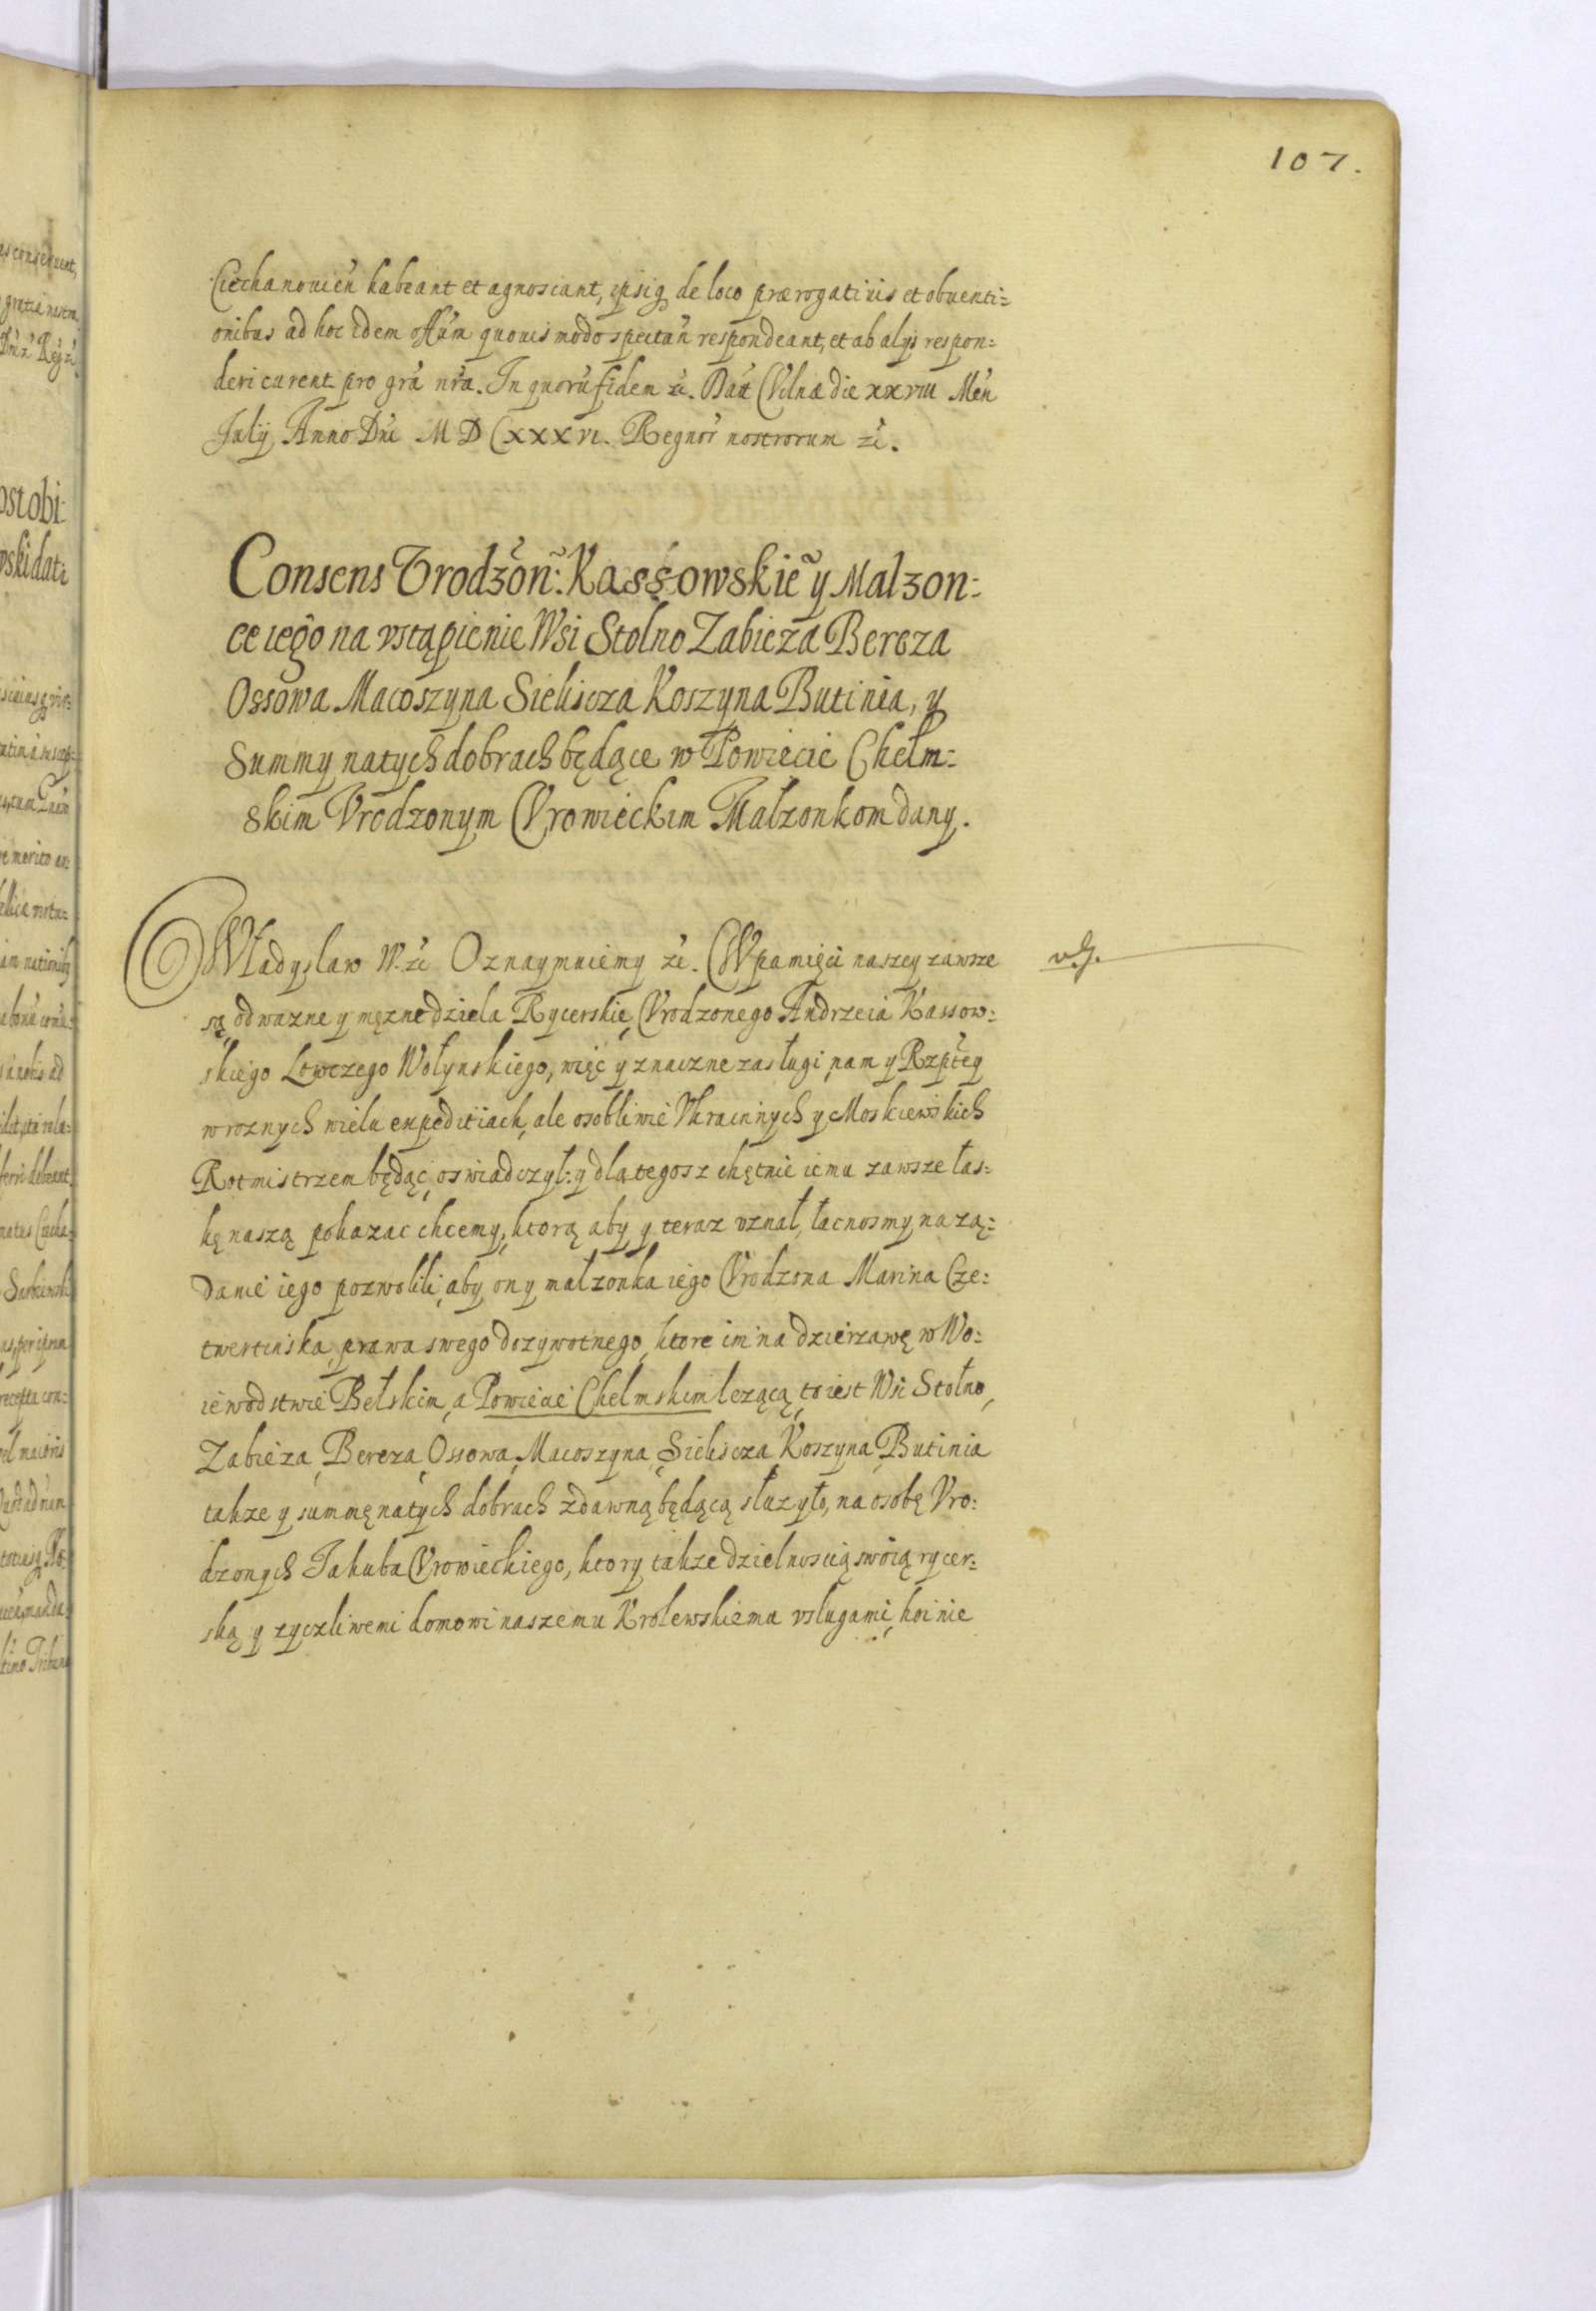 107.
Ciechanouień habeant et agnoscant, ipsiq de loco prærogatiuis et obuenti=
onibus ad hoc idem offūm quouis modo spectań respondeant, et ab alijs respon=
deri curent pro grā nrā. In quorū fidem zc. Dat Vilnæ die xxviii Men
Julij Anno Dni M D C xxxvi. Regnor nostrorum zc.
Consens Vrodzon: Kassowskie y Malzon=
ce iego na vstąpienie Wsi Stolno Zabieza Bereza
Ossowa Macoszyna Sieliscza Koszyna Butinia, y
Summy natych dobrach będące w Powiecie Chełm=
skim Vrodzonym Vrowieckim Małzonkom dany.
Władysław W. zc Oznaymuiemy zc. W pamięci naszey zawsze
v.g.
są odwazne y męzne dziela Rycerskie, Vrodzonego Andrzeia Kassow=
skiego Łowczego Wołynskiego, więc y znaczne zasługi, nam y Rzptey
w roznych wielu expeditiach, ale osobliwie Vkrainnych y Moskiewskich
Rotmistrzem będąc, oswiadczył: y dlategosz chętnie iemu zawsze łas=
kę naszą pokazac chcemy, ktorą aby y teraz vznał, łacnosmy na zą=
danie iego pozwolili, aby on y małzonka iego Vrodzona Marina Cze=
twertinska, prawa swego dozywotnego, ktore im na dzierzawę w Wo=
iewodstwie Bełskim, a Powiecie Chelmskim lezącą, to iest Wsi Stołno,
Zabieza, Bereza, Ossowa, Macoszyna, Sieliscza Koszyna, Butinia
takze y summę natych dobrach zdawną będącą słuzyło, na osobę Vro=
dzonych Jakuba Vrowieckiego, ktory takze dzielnoscią swoią rycer=
ską y zyczliwemi domowi naszemu Krolewskiemu vsługami, hoinie